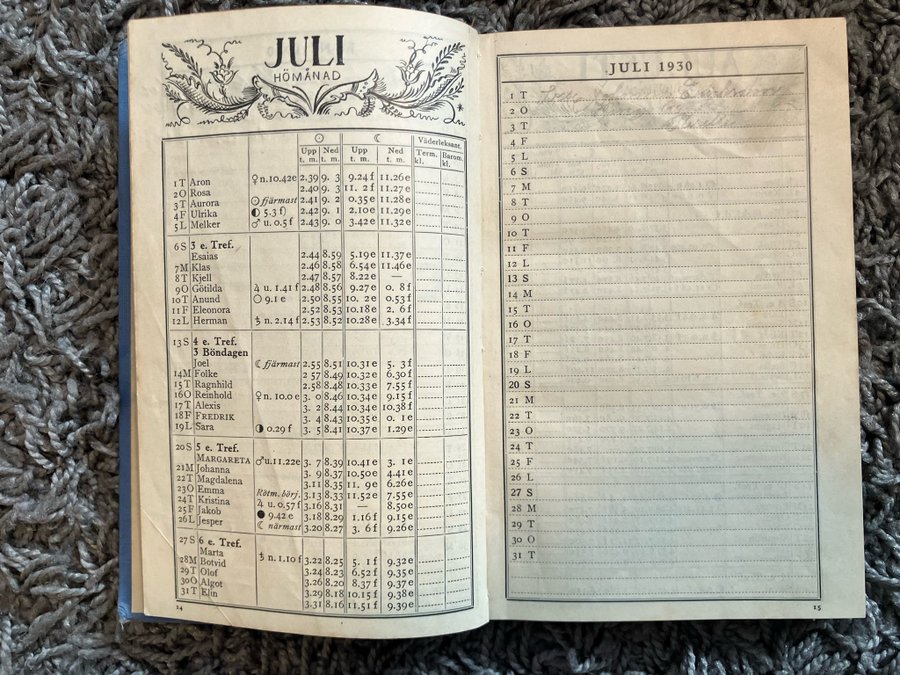 JULI
HÖMÅNAD
☉ ☾ Väderleksant.
Upp Ned Upp Ned Term. Barom.
t. m. t. m. t. m. t. m. kl. kl.
1 T Aron ♀ n. 10.42 e 2.39 9. 3 9.24 f 11.26 e
2 O Rosa 2.40 9. 3 11. 2 f 11.27 e
3 T Aurora ☉ fjärmast 2.41 9. 2 0.35 e 11.28 e
4 F Ulrika ◐ 5.3 f) 2.42 9. 1 2.10 e 11.29 e
5 L Melker ♂ u. 0.5 f 2.43 9. 0 3.42 e 11.32 e
6 S 3 e. Tref.
Esaias 2.44 8.59 5.19 e 11.37 e
7 M Klas 2.46 8.58 6.54 e 11.46 e
8 T Kjell 2.47 8.57 8.22 e —
9 O Götilda ♃ u. 1.41 f 2.48 8.56 9.27 e 0. 8 f
10 T Anund ○ 9.1 e 2.50 8.55 10. 2 e 0.53 f
11 F Eleonora 2.52 8.53 10.18 e 2. 6 f
12 L Herman ♄ n. 2.14 f 2.53 8.52 10.28 e 3.34 f
13 S 4 e. Tref.
3 Böndagen
Joel ☾ fjärmast 2.55 8.51 10.31 e 5. 3 f
14 M Folke 2.57 8.49 10.32 e 6.30 f
15 T Ragnhild 2.58 8.48 10.33 e 7.55 f
16 O Reinhold ♀ n. 10.0 e 3. 0 8.46 10.34 e 9.15 f
17 T Alexis 3. 2 8.44 10.34 e 10.38 f
18 F FREDRIK 3. 4 8.43 10.35 e 0. 1 e
19 L Sara ◑ 0.29 f 3. 5 8.41 10.37 e 1.29 e
20 S 5 e. Tref.
MARGARETA ♂ u. 11.22 e 3. 7 8.39 10.41 e 3. 1 e
21 M Johanna 3. 9 8.37 10.50 e 4.41 e
22 T Magdalena 3.11 8.35 11. 9 e 6.26 e
23 O Emma Rötm. börj. 3.13 8.33 11.52 e 7.55 e
24 T Kristina ♃ u. 0.57 f 3.16 8.31 — 8.50 e
25 F Jakob ● 9.42 e 3.18 8.29 1.16 f 9.15 e
26 L Jesper ☾ närmast 3.20 8.27 3. 6 f 9.26 e
27 S 6 e. Tref.
Marta ♄ n. 1.10 f 3.22 8.25 5. 1 f 9.32 e
28 M Botvid 3.24 8.23 6.52 f 9.35 e
29 T Olof 3.26 8.20 8.37 f 9.37 e
30 O Algot 3.29 8.18 10.15 f 9.38 e
31 T Elin 3.31 8.16 11.51 f 9.39 e
14
JULI 1930
1 T
2 O
3 T
4 F
5 L
6 S
7 M
8 T
9 O
10 T
11 F
12 L
13 S
14 M
15 T
16 O
17 T
18 F
19 L
20 S
21 M
22 T
23 O
24 T
25 F
26 L
27 S
28 M
29 T
30 O
31 T
15